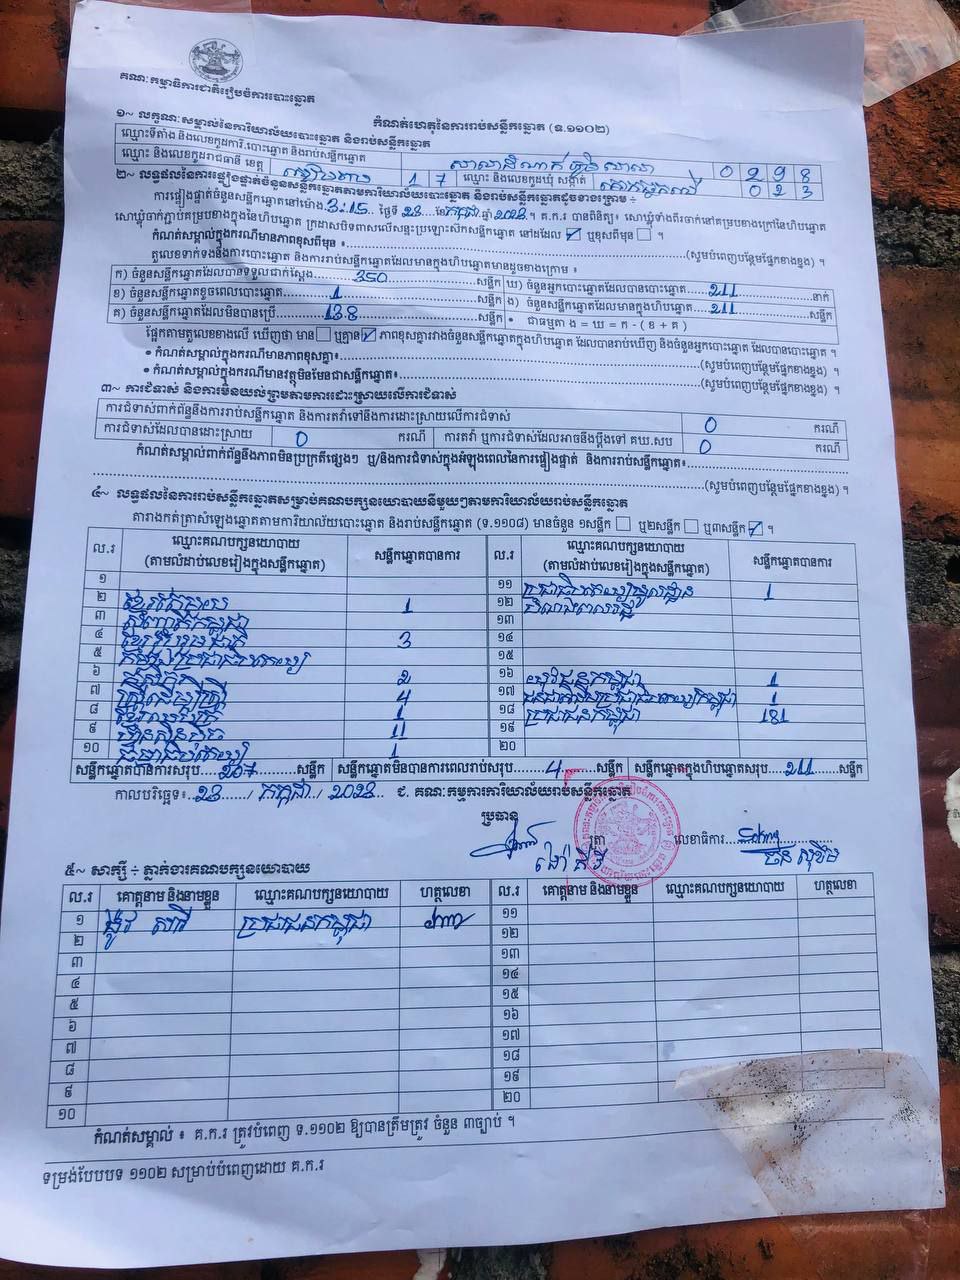 គណៈកម្មាធិការជាតិរៀបចំការបោះឆ្នោត
កំណត់ហេតុនៃការរាប់សន្លឹកឆ្នោត (ទ.១១០២)
១~ លក្ខណៈសម្គាល់នៃការិយាល័យបោះឆ្នោត និងរាប់សន្លឹកឆ្នោត
ឈ្មោះទីតាំង និងលេខកូដការិ.បោះឆ្នោត និងរាប់សន្លឹកឆ្នោត 0 2 9 8
ឈ្មោះ និងលេខកូដរាជធានី ខេត្ត សៀមរាប 1 7 ឈ្មោះ និងលេខកូដឃុំ សង្កាត់ 0 2 3
២~ លទ្ធផលនៃការផ្ទៀងផ្ទាត់ចំនួនសន្លឹកឆ្នោតតាមការិយាល័យបោះឆ្នោត និងរាប់សន្លឹកឆ្នោតដូចខាងក្រោម ÷
ការផ្ទៀងផ្ទាត់ចំនួនសន្លឹកឆ្នោតនៅម៉ោង 3:15 ថ្ងៃទី 23 ខែកក្កដា ឆ្នាំ 2023 ។ គ.ក.រ បានពិនិត្យ ៖ សោឃ្លុំទាំងពីរចាក់នៅគម្របខាងក្រៅនៃហិបឆ្នោត
សោឃ្លុំចាក់ភ្ជាប់គម្របខាងក្នុងនៃហិបឆ្នោត ក្រដាសបិទពាសលើសន្ទះប្រឡោះស៊ក​សន្លឹកឆ្នោត នៅដដែល ✓ ឬខុសពីមុន ។
កំណត់សម្គាល់ក្នុងករណីមានភាពខុសពីមុន ៖ (សូមបំពេញបន្ថែមផ្នែកខាងខ្នង) ។
តួលេខទាក់ទងនឹងការបោះឆ្នោត និងការរាប់សន្លឹកឆ្នោតដែលមានក្នុងហិបឆ្នោតមានដូចខាងក្រោម ៖
ក) ចំនួនសន្លឹកឆ្នោតដែលបានទទួលជាក់ស្តែង 350 សន្លឹក ឃ) ចំនួនអ្នកបោះឆ្នោតដែលបានបោះឆ្នោត 211 នាក់
ខ) ចំនួនសន្លឹកឆ្នោតខូចពេលបោះឆ្នោត 1 សន្លឹក ង) ចំនួនសន្លឹកឆ្នោតដែលមានក្នុងហិបឆ្នោត 211 សន្លឹក
គ) ចំនួនសន្លឹកឆ្នោតដែលមិនបានប្រើ 138 សន្លឹក • ជាធម្មតា ង = ឃ = ក - ( ខ + គ )
ផ្អែកតាមតួលេខខាងលើ ឃើញថា មាន ឬគ្មាន ✓ ភាពខុសគ្នារវាងចំនួនសន្លឹកឆ្នោតក្នុងហិបឆ្នោត ដែលបានរាប់ឃើញ និងចំនួនអ្នកបោះឆ្នោត ដែលបានបោះឆ្នោត ។
• កំណត់សម្គាល់ក្នុងករណីមានភាពខុសគ្នា៖ (សូមបំពេញបន្ថែមផ្នែកខាងខ្នង) ។
• កំណត់សម្គាល់ក្នុងករណីមានវត្ថុមិនមែនជាសន្លឹកឆ្នោត៖ (សូមបំពេញបន្ថែមផ្នែកខាងខ្នង) ។
៣~ ការជំទាស់ និងការមិនយល់ព្រមតាមការដោះស្រាយលើការជំទាស់
ការជំទាស់ពាក់ព័ន្ធនឹងការរាប់សន្លឹកឆ្នោត និងការតវ៉ាទៅនឹងការដោះស្រាយលើការជំទាស់ 0 ករណី
ការជំទាស់ដែលបានដោះស្រាយ 0 ករណី ការតវ៉ា ឬការជំទាស់ដែលអាចនឹងប្តឹងទៅ គឃ.សប 0 ករណី
កំណត់សម្គាល់ពាក់ព័ន្ធនឹងភាពមិនប្រក្រតីផ្សេងៗ ឬ/និងការជំទាស់ក្នុងអំឡុងពេលនៃការផ្ទៀងផ្ទាត់ និងការរាប់សន្លឹកឆ្នោត៖
(សូមបំពេញបន្ថែមផ្នែកខាងខ្នង) ។
៤~ លទ្ធផលនៃការរាប់សន្លឹកឆ្នោតសម្រាប់គណបក្សនយោបាយនីមួយៗតាមការិយាល័យរាប់សន្លឹកឆ្នោត
តារាងកត់ត្រាសំឡេងឆ្នោតតាមការិយាល័យបោះឆ្នោត និងរាប់សន្លឹកឆ្នោត (ទ.១១០៨) មានចំនួន ១សន្លឹក ឬ២សន្លឹក ឬ៣សន្លឹក ✓ ។
ល.រ ឈ្មោះគណបក្សនយោបាយ (តាមលំដាប់លេខរៀងក្នុងសន្លឹកឆ្នោត) សន្លឹកឆ្នោតបានការ ល.រ ឈ្មោះគណបក្សនយោបាយ (តាមលំដាប់លេខរៀងក្នុងសន្លឹកឆ្នោត) សន្លឹកឆ្នោតបានការ
១ ១១ 1
២ 1 ១២
៣ ១៣
៤ 3 ១៤
៥ ១៥
៦ 2 ១៦ យុវជនកម្ពុជា 1
៧ 4 ១៧ 1
៨ 1 ១៨ ប្រជាជនកម្ពុជា 181
៩ 11 ១៩
១០ 1 ២០
សន្លឹកឆ្នោតបានការសរុប 207 សន្លឹក សន្លឹកឆ្នោតមិនបានការពេលរាប់សរុប 4 សន្លឹក សន្លឹកឆ្នោតក្នុងហិបឆ្នោតសរុប 211 សន្លឹក
កាលបរិច្ឆេទ៖ 23 / កក្កដា / 2023 ជ. គណៈកម្មការការិយាល័យរាប់សន្លឹកឆ្នោត
ប្រធាន ត្រា លេខាធិការ
៥~ សាក្សី ÷ ភ្នាក់ងារគណបក្សនយោបាយ
ល.រ គោត្តនាម និងនាមខ្លួន ឈ្មោះគណបក្សនយោបាយ ហត្ថលេខា ល.រ គោត្តនាម និងនាមខ្លួន ឈ្មោះគណបក្សនយោបាយ ហត្ថលេខា
១ ប្រជាជនកម្ពុជា ១១
២ ១២
៣ ១៣
៤ ១៤
៥ ១៥
៦ ១៦
៧ ១៧
៨ ១៨
៩ ១៩
១០ ២០
កំណត់សម្គាល់ ៖ គ.ក.រ ត្រូវបំពេញ ទ.១១០២ ឱ្យបានត្រឹមត្រូវ ចំនួន ៣ច្បាប់ ។
ទម្រង់បែបបទ ១១០២ សម្រាប់បំពេញដោយ គ.ក.រ